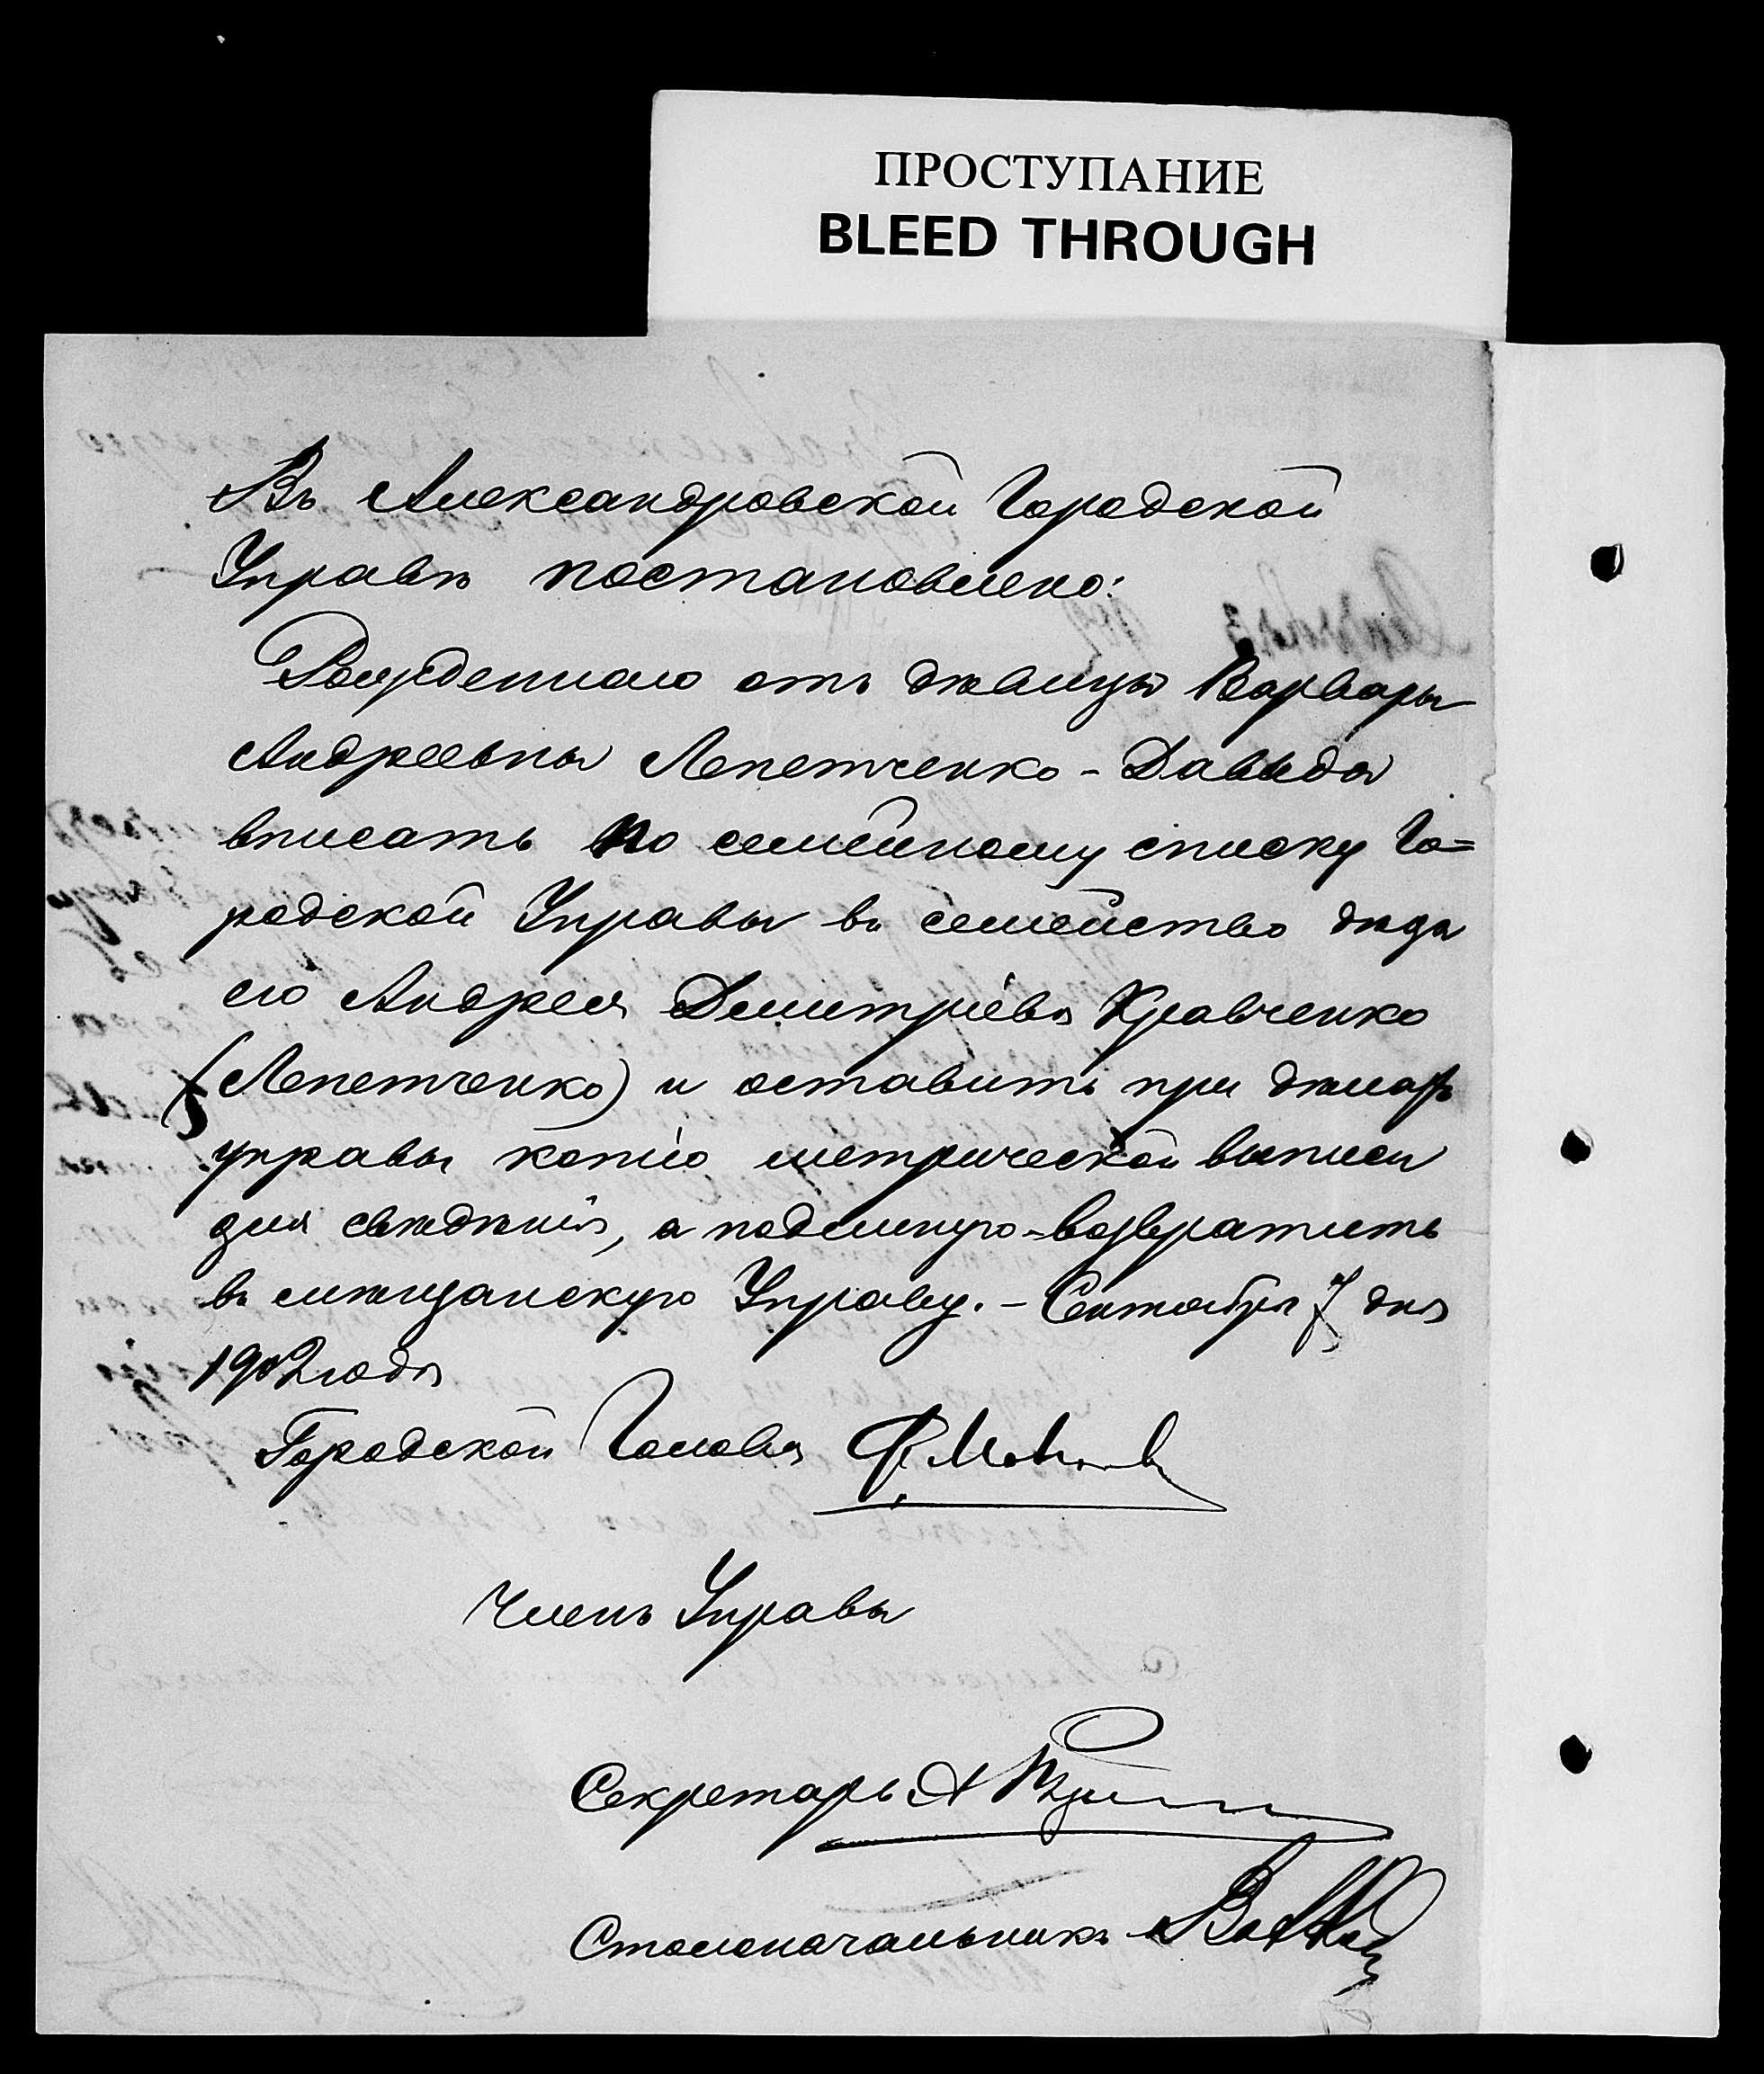 ПРОСТУПАНИЕ
BLEED THROUGH
Въ Александровской Городской
Управѣ постановлено:
Рожденнаго отъ дѣвицы Варвары
Андреевны Лепетченко - Давида
вписать по семейному списку Го=
родской Управы въ семейство дѣда
его Андрея Дмитріева Кравченко
(Лепетченко) и оставить при дѣлахъ
управы копію метрической выписи
для свѣдѣнія, а подлинную - возвратить
въ мѣщанскую Управу. - Сентября 7 дня
1902 года
Городской Голова Ф.
Членъ Управы
Секретарь А
Столоначальникъ